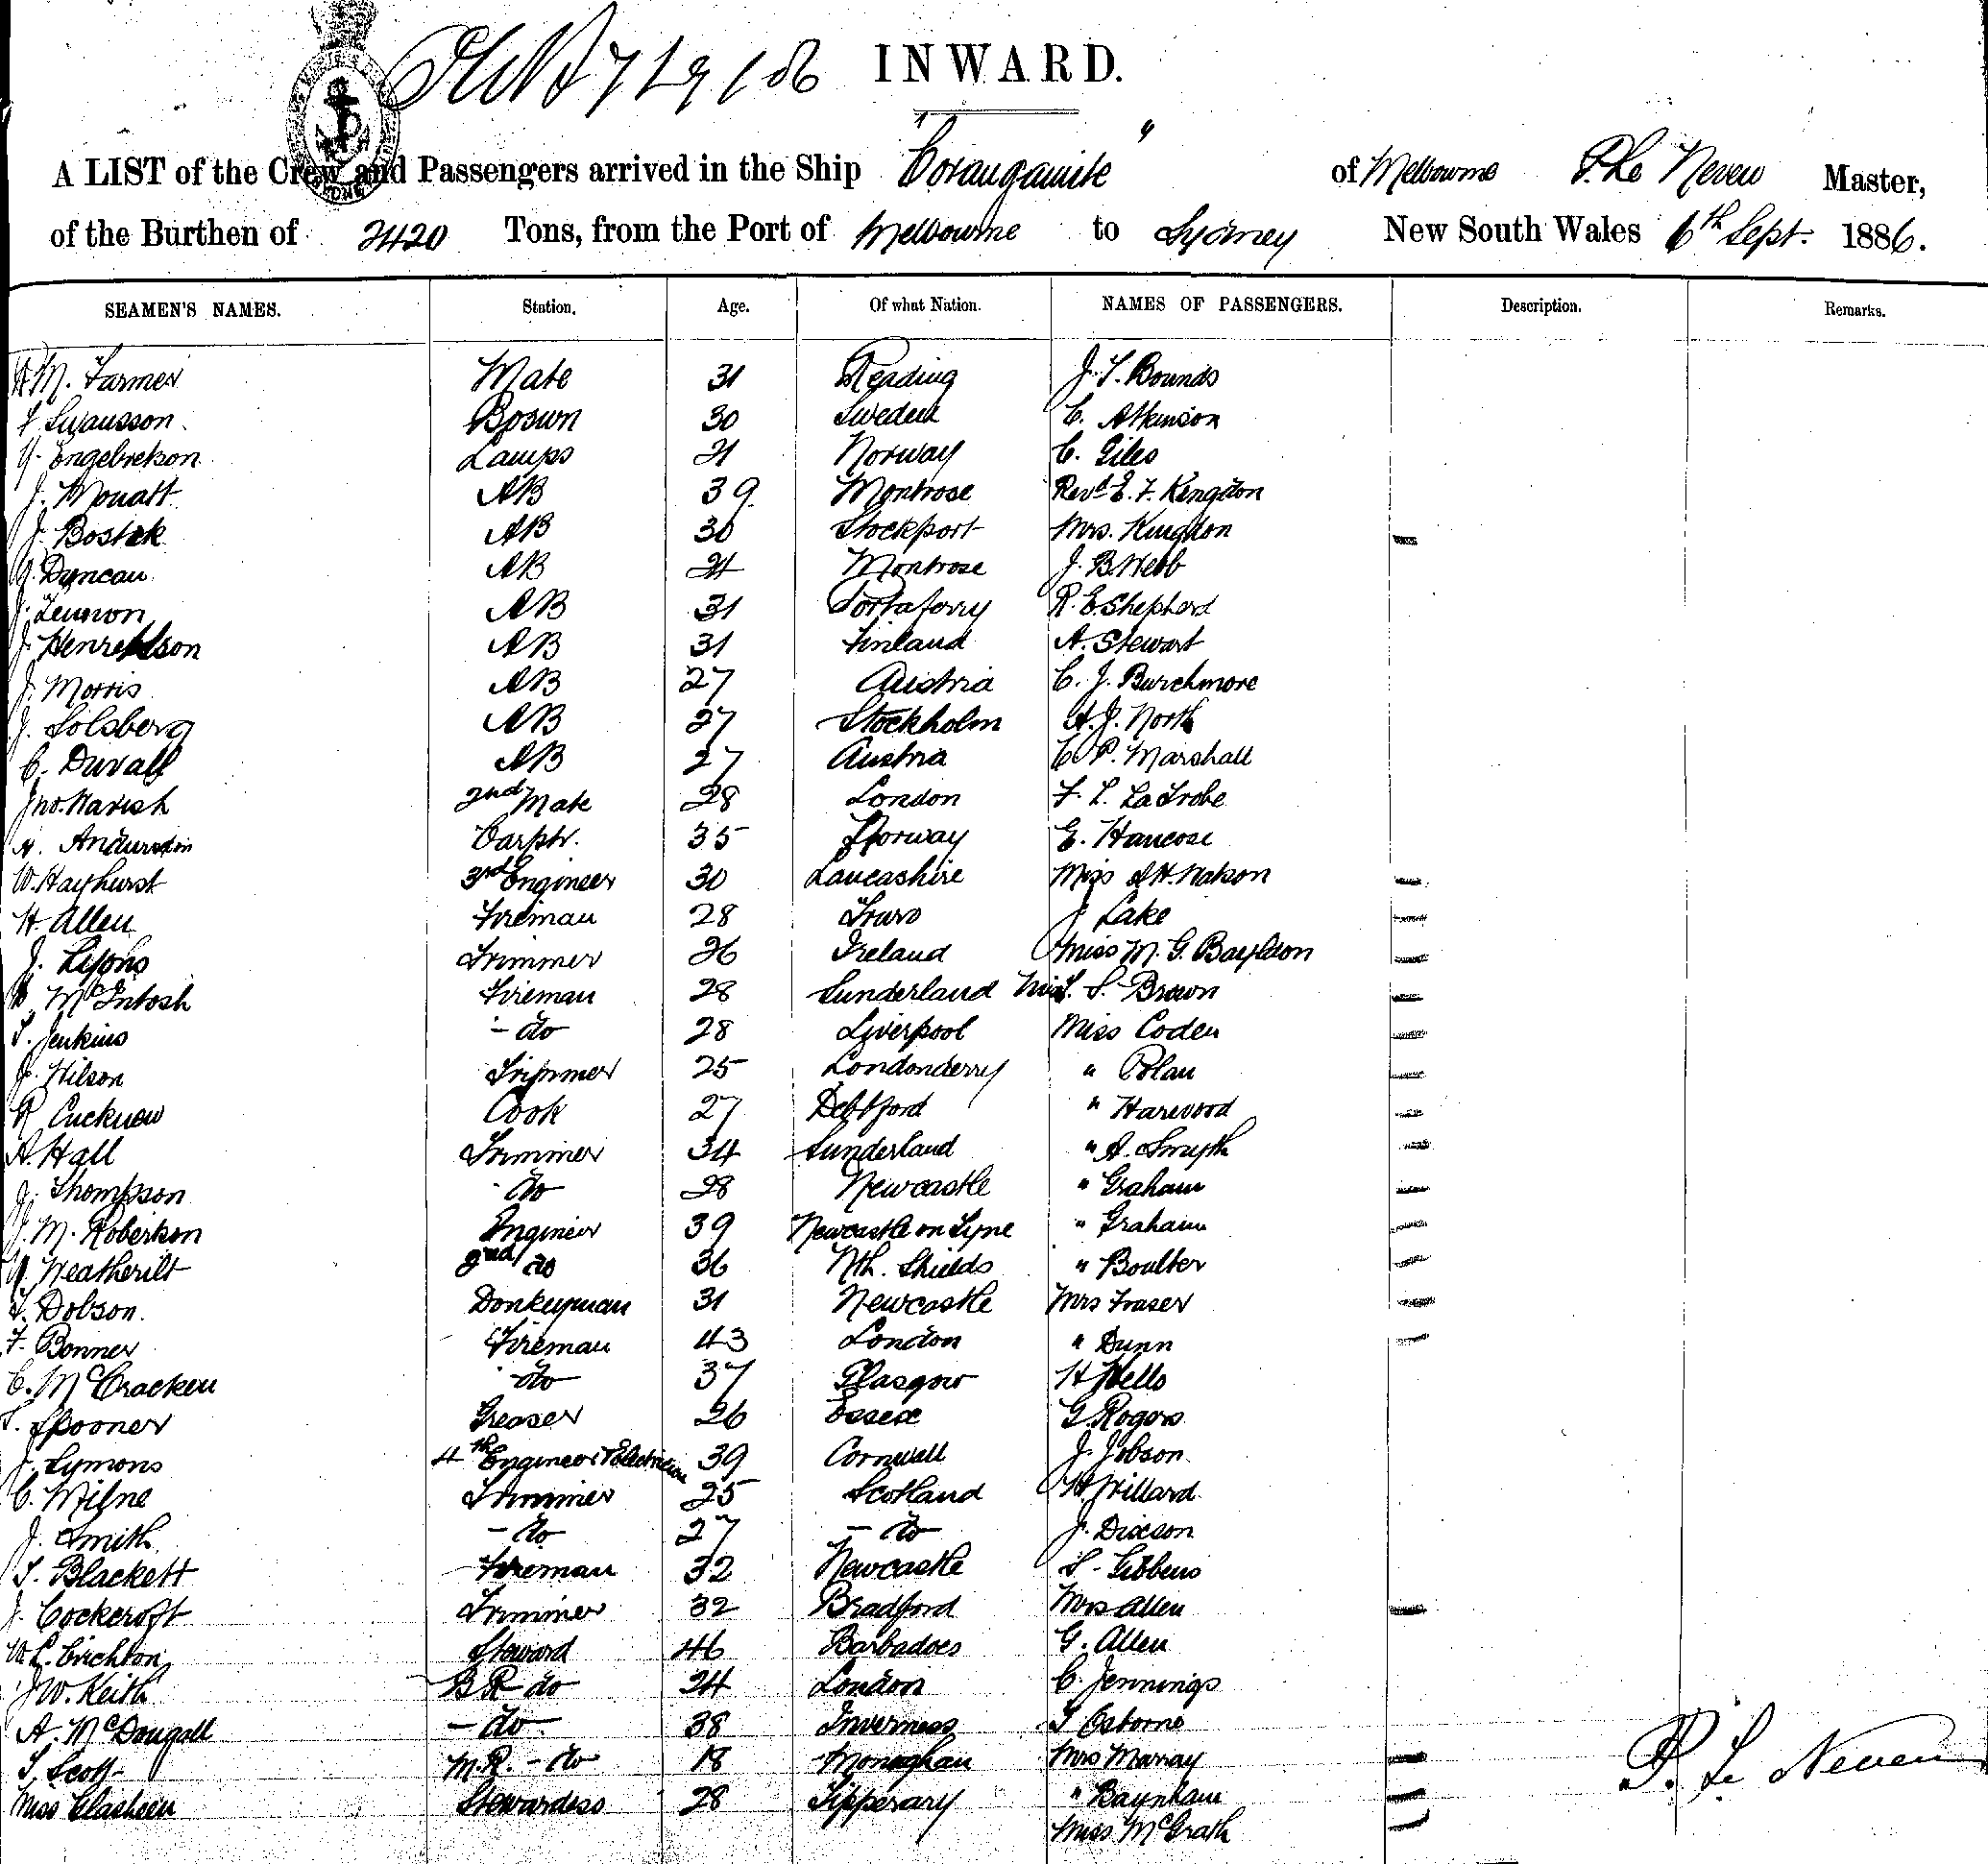 INWARD.
A LIST of the Crew and Passengers arrived in the Ship "Corangamite" of Melbourne P. Le Neveu Master,
of the Burthen of 2420 Tons, from the Port of Melbourne to Sydney New South Wales 6th Sept. 1886.
SEAMEN'S NAMES. Station. Age. Of what Nation. NAMES OF PASSENGERS. Description. Remarks.
M. Farmer Mate 31 Reading J. T. Bounds
Swansson Boswn 30 Sweden C. Atkinson
Engebretson Lamps 21 Norway C. Giles
J. Mouatt AB 39 Montrose Revd E. F. Kingdon
J. Bostek AB 30 Stockport Mrs. Kingdon
G. Duncan AB Montrose J. B. Webb
J. Lennon AB 31 Portaferry R. E. Shepherd
J. AB 31 Finland A. Stewart
J. Morris AB 27 Austria C. J. Burchmore
J. Solsberg AB 27 Stockholm A. J. North
C. Duvall AB 27 Austria C. P. Marshall
Jno. 2nd Mate 28 London F. L. LaTrobe
Carptr. 35 Norway E. Hancose
W. Hayhurst 3rd Engineer 30 Lancashire Miss Watson
H. Allen Fireman 28 Truro J Lake
J. Lyons Trimmer 26 Ireland Miss M. G. Bayldon
McIntosh Fireman 28 Sunderland S. Brown
T. Jenkins - do 28 Liverpool Miss Coden
J. Wilson Trimmer 25 Londonderry " Polan
R Cucknow Cook 27 Debtford " Harwood
A. Hall Trimmer 34 Sunderland " A. Smyth
J. Thompson do 28 Newcastle " Graham
J. M. Robertson Engineer 39 Newcastle on Tyne " Graham
Weatherilt 2nd do 36 Nth. Shields " Boulter
T. Dobson. Donkeyman 31 Newcastle Mrs Fraser
F. Bonner Fireman 43 London " Dunn
C. McCracken do 37 Glasgow H Wells
T. Spooner Greaser 26 Essex G. Rogers
J. Symons 4th Engineer & Electrician 39 Cornwall J. Jobson
C. Milne Trimmer 25 Scotland H. Willard
J. Smith - do 27 - do J. Dixson
T. Blackett Fireman 32 Newcastle S. Gibbens
J. Cockcroft Trimmer 32 Bradford Mrs Allen
W. L. Crichton Steward 46 Barbadoes G. Allen
J W. Keith B R do 24 London C. Jennings
A. McDougall - do 38 Inverness T Osborne
T. Scott M.R. - do 18 Monaghan Mrs Murray
Miss Glasheen Stewardess 28 Tipperary " Baynham
Miss McGrath
P. Le Neveu